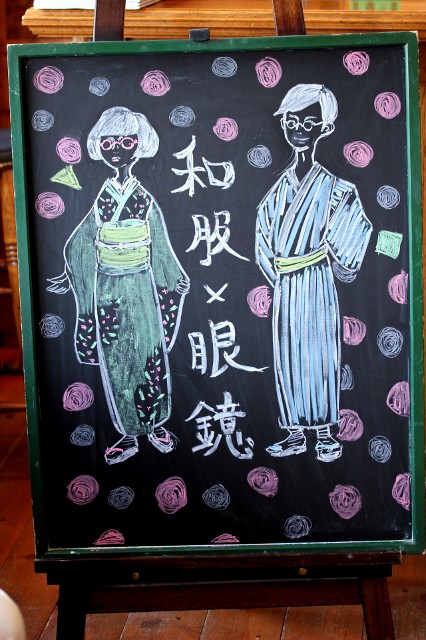 和服×眼鏡